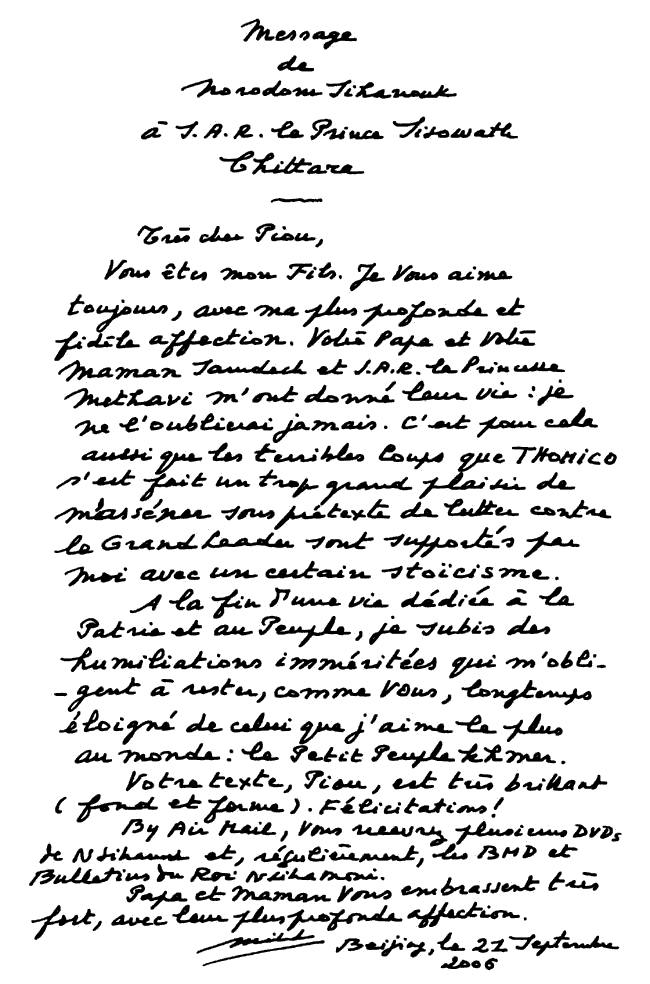 Message
de
Norodom Sihanouk
à S.A.R. le Prince Sisowath
Chittara
Très cher Piou,
Vous êtes mon Fils. Je Vous aime
toujours, avec ma plus profonde et
fidèle affection. Votre Papa et Votre
Maman Samdech et S.A.R. la Princesse
Methavi m'ont donné leur vie : je
ne l'oublierai jamais. C'est pour cela
aussi que les terribles coups que THOMICO
s'est fait un trop grand plaisir de
m'asséner sous prétexte de lutter contre
le Grand Leader sont supportés par
moi avec un certain stoïcisme.
A la fin d'une vie dédiée à la
Patrie et au Peuple, je subis des
humiliations imméritées qui m'obli-
-gent à rester, comme Vous, longtemps
éloigné de celui que j'aime le plus
au monde : le Petit Peuple khmer.
Votre texte, Piou, est très brillant
(fond et forme). Félicitations!
By Air Mail, Vous recevrez plusieurs DVDs
de N Sihanouk et, régulièrement, les BMD et
Bulletins du Roi N Sihamoni.
Papa et Maman Vous embrassent très
fort, avec leur plus profonde affection.
Beijing, le 21 Septembre
2006